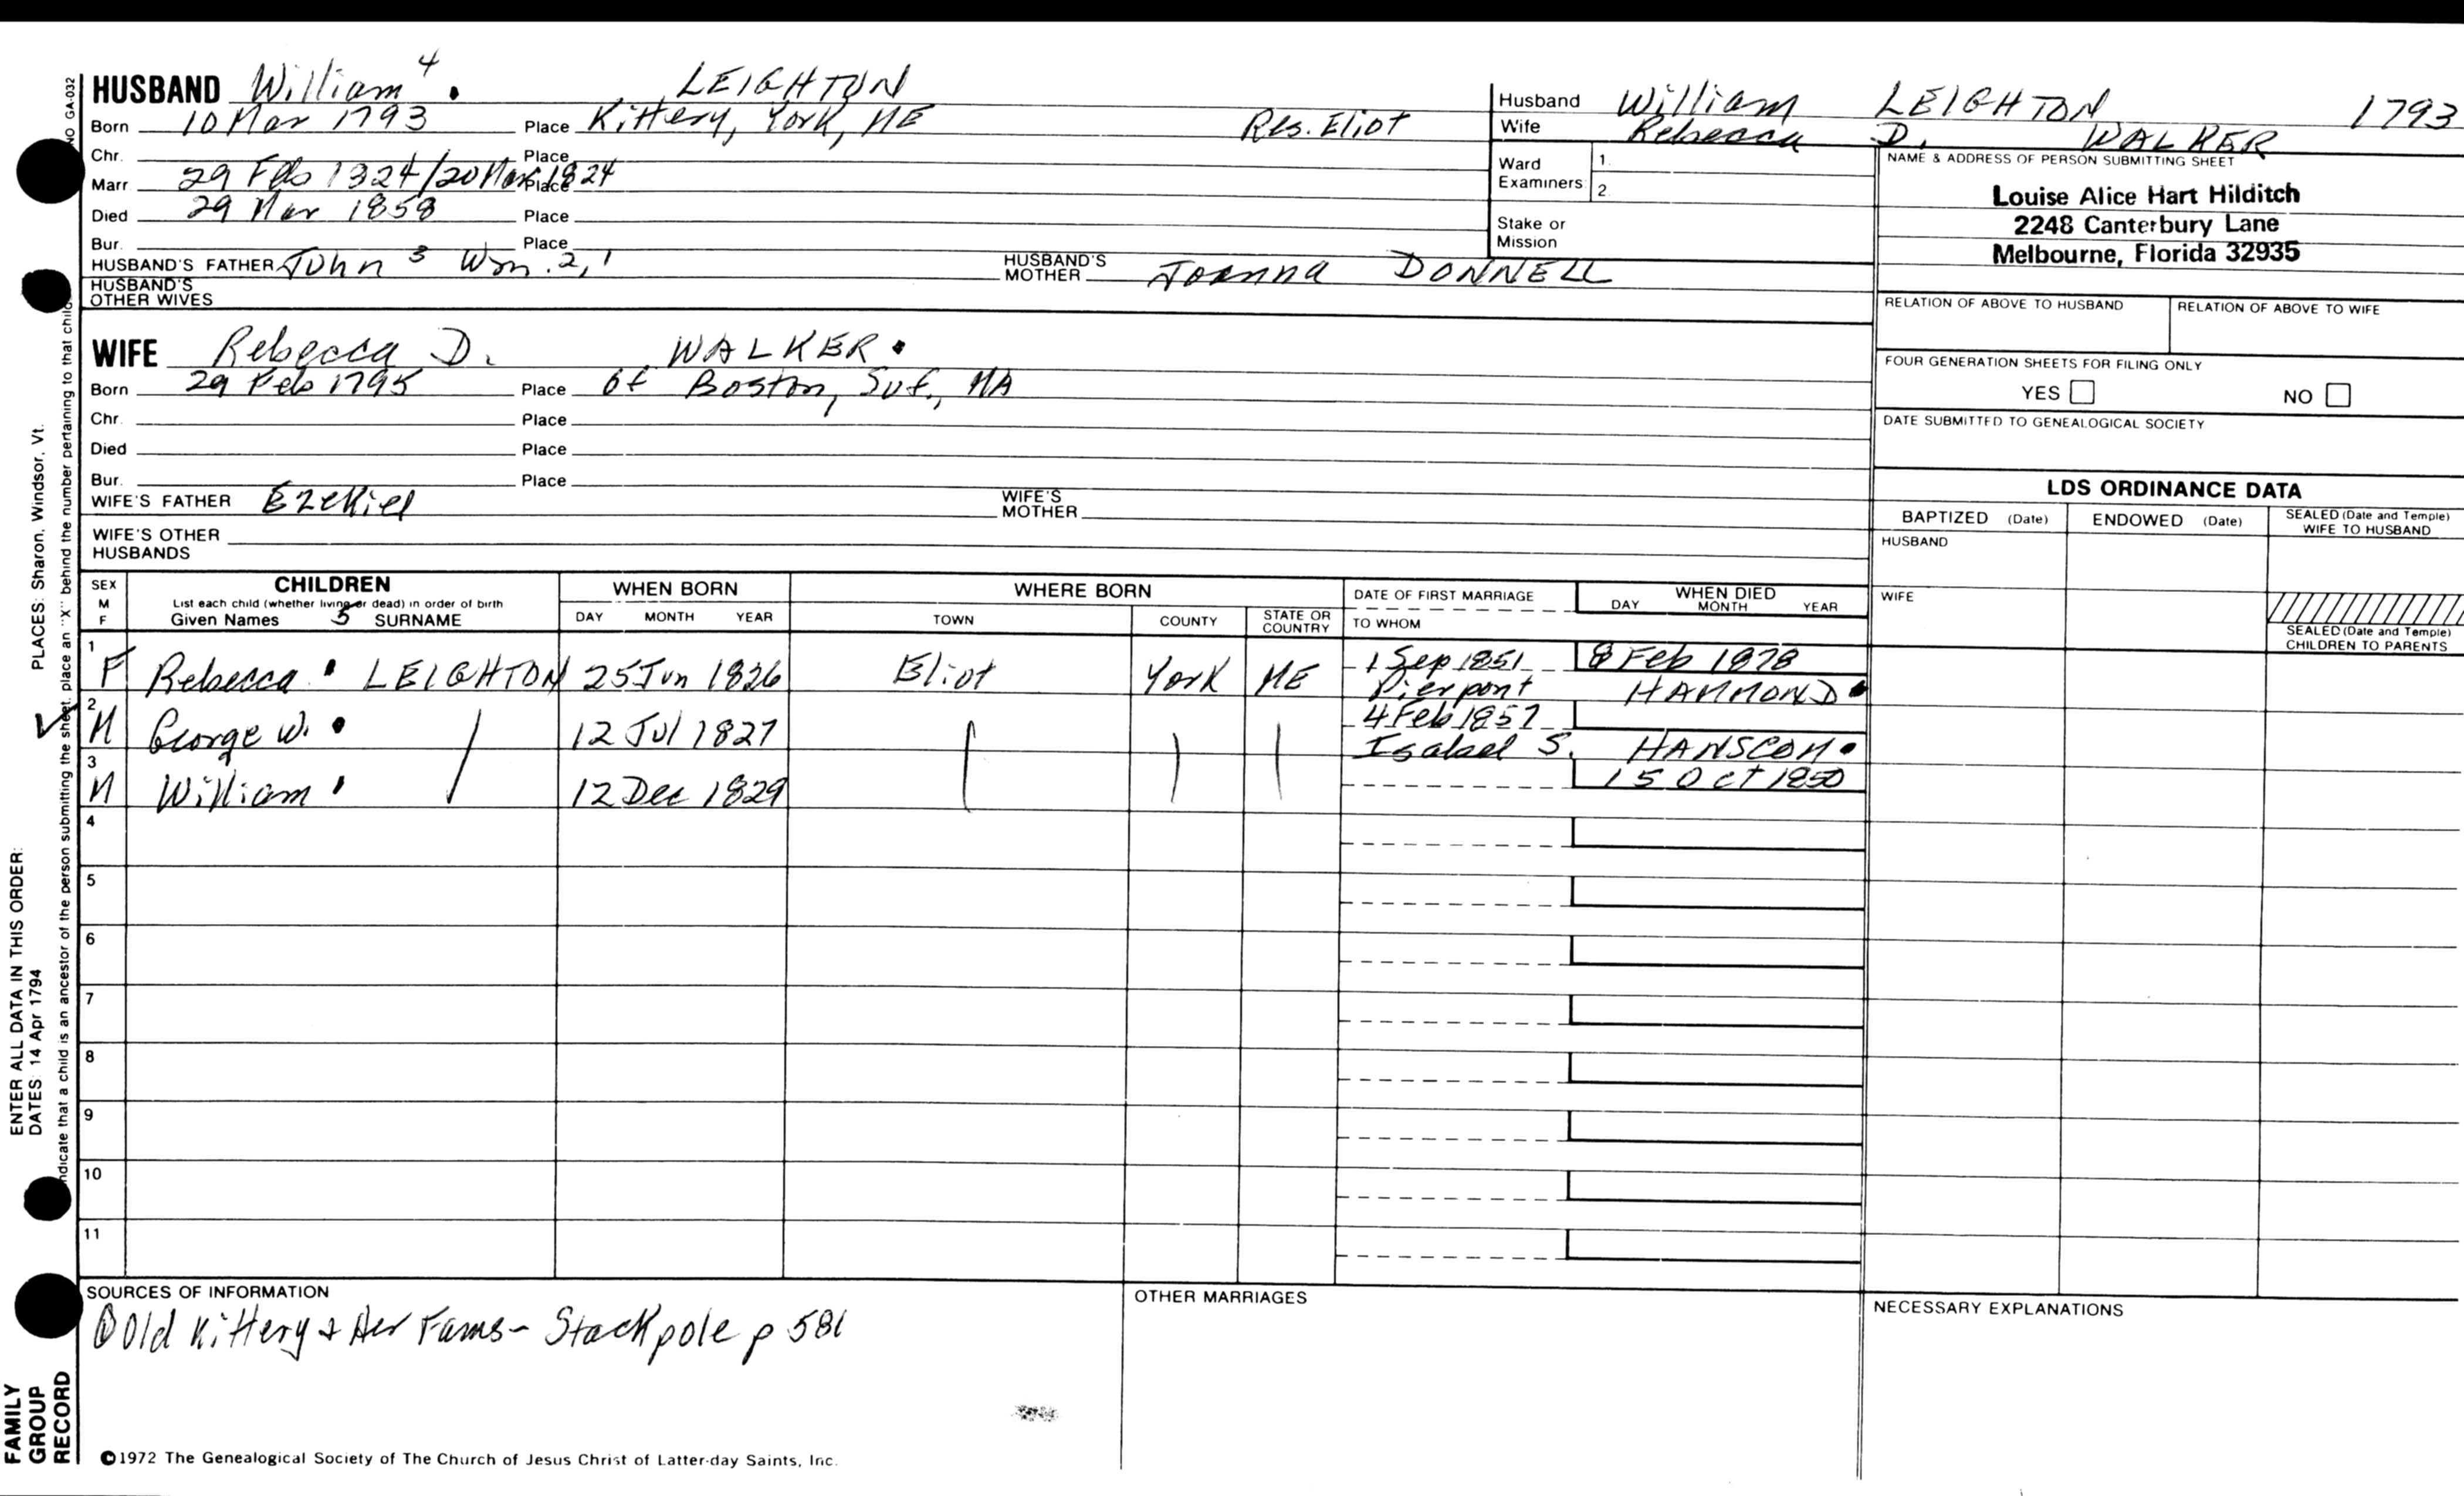 HUSBAND William 4 . LEIGHTON
Born 10 Mar 1793 Place Kittery, York, ME Res. Eliot
Chr. Place
Marr. 29 Feb 1824/20 Mar 1824 Place
Died 29 Mar 1858 Place
Bur. Place
HUSBAND'S FATHER John 3 Wm. 2,1 HUSBAND'S MOTHER Joanna DONNELL
HUSBAND'S OTHER WIVES
WIFE Rebecca D. WALKER .
Born 29 Feb 1795 Place of Boston, Suf., MA
Chr. Place
Died Place
Bur. Place
WIFE'S FATHER Ezekiel WIFE'S MOTHER
WIFE'S OTHER HUSBANDS
Husband William LEIGHTON 1793
Wife Rebecca D. WALKER
Ward Examiners 1. 2.
Stake or Mission
NAME & ADDRESS OF PERSON SUBMITTING SHEET
Louise Alice Hart Hilditch
2248 Canterbury Lane
Melbourne, Florida 32935
RELATION OF ABOVE TO HUSBAND RELATION OF ABOVE TO WIFE
FOUR GENERATION SHEETS FOR FILING ONLY
YES NO
DATE SUBMITTED TO GENEALOGICAL SOCIETY
LDS ORDINANCE DATA
BAPTIZED (Date) ENDOWED (Date) SEALED (Date and Temple) WIFE TO HUSBAND
HUSBAND
WIFE
SEALED (Date and Temple) CHILDREN TO PARENTS
SEX M F CHILDREN WHEN BORN WHERE BORN DATE OF FIRST MARRIAGE WHEN DIED
List each child (whether living or dead) in order of birth
Given Names 5 SURNAME DAY MONTH YEAR TOWN COUNTY STATE OR COUNTRY TO WHOM DAY MONTH YEAR
1 F Rebecca . LEIGHTON 25 Jun 1826 Eliot York ME 1 Sep 1851 8 Feb 1878
Pierpont HAMMOND .
2 M George W. . 12 Jul 1827 4 Feb 1857
Isabael S. HANSCOM .
3 M William . 12 Dec 1829 15 Oct 1850
4
5
6
7
8
9
10
11
SOURCES OF INFORMATION
Old Kittery & Her Fams- Stackpole p 581
OTHER MARRIAGES
NECESSARY EXPLANATIONS
©1972 The Genealogical Society of The Church of Jesus Christ of Latter-day Saints, Inc.
FAMILY GROUP RECORD
ENTER ALL DATA IN THIS ORDER:
DATES: 14 Apr 1794 PLACES: Sharon, Windsor, Vt.
indicate that a child is an ancestor of the person submitting the sheet, place an "X" behind the number pertaining to that child.
NO GA-032